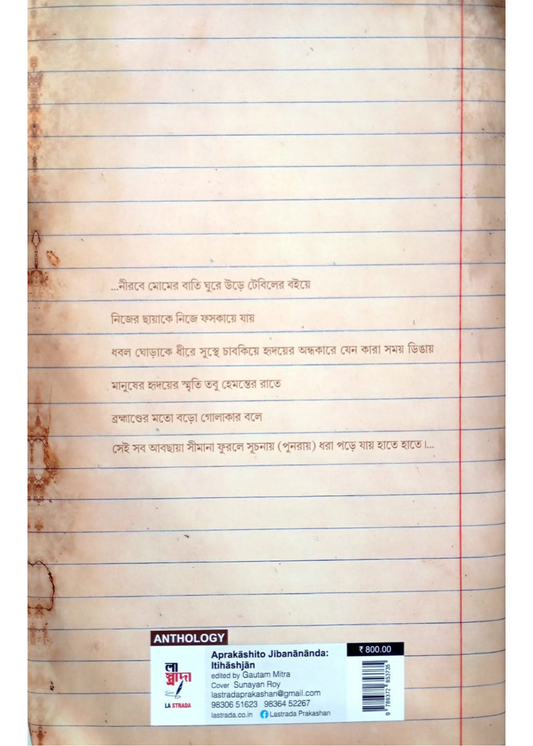 ...নীরবে মোমের বাতি ঘুরে উড়ে টেবিলের বইয়ে
নিজের ছায়াকে নিজে ফসকায়ে যায়
ধবল ঘোড়াকে ধীরে সুস্থে চাবকিয়ে হৃদয়ের অন্ধকারে যেন কারা সময় ডিঙায়
মানুষের হৃদয়ের স্মৃতি তবু হেমন্তের রাতে
ব্রহ্মাণ্ডের মতো বড়ো গোলাকার বলে
সেই সব আবছায়া সীমানা ফুরলে সূচনায় (পুনরায়) ধরা পড়ে যায় হাতে হাতে।...
ANTHOLOGY
Aprakāshito Jibanānānda:
Itihāshjān
edited by Gautam Mitra
Cover Sunayan Roy
lastradaprakashan@gmail.com
98306 51623 98364 52267
lastrada.co.in Lastrada Prakashan
লা স্ত্রাদা
LA STRADA
₹ 800.00